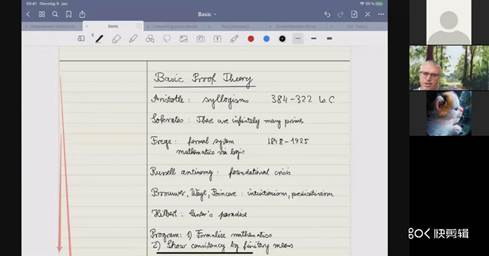 Basic
Basic
Basic Proof Theory
Aristotle: syllogisms 384-322 b.C
Sokrates: There are infinitely many primes
Frege: formal system 1848-1925
mathematics via logic
Russell antinomy: foundational crisis
Brouwer, Weyl, Poincare: intuitionism, predicativism
Hilbert: Cantor's paradise
Program: 1) Formalise mathematics
2) Show consistency by finitary means
快剪辑